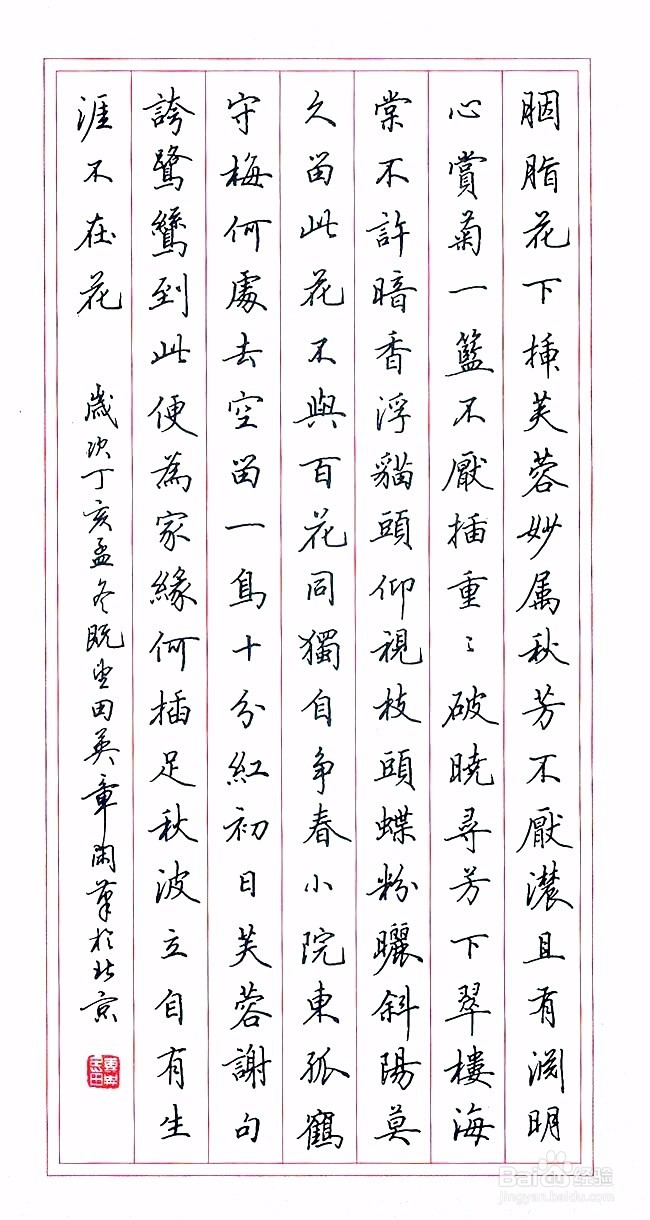 胭脂花下插芙蓉妙属秋芳不厭濃且有淵明
心賞菊一籃不厭插重〻破曉尋芳下翠樓海
棠不許暗香浮貓頭仰視枝頭蝶粉曬斜陽莫
久留此花不與百花同獨自争春小院東孤鶴
守梅何處去空留一鳥十分紅初日芙蓉謝句
誇鷺鷥到此便為家緣何插足秋波立自有生
涯不在花
歲次丁亥孟冬既望田英章閑筆於北京
Baidu 经验
jingyan.baidu.com